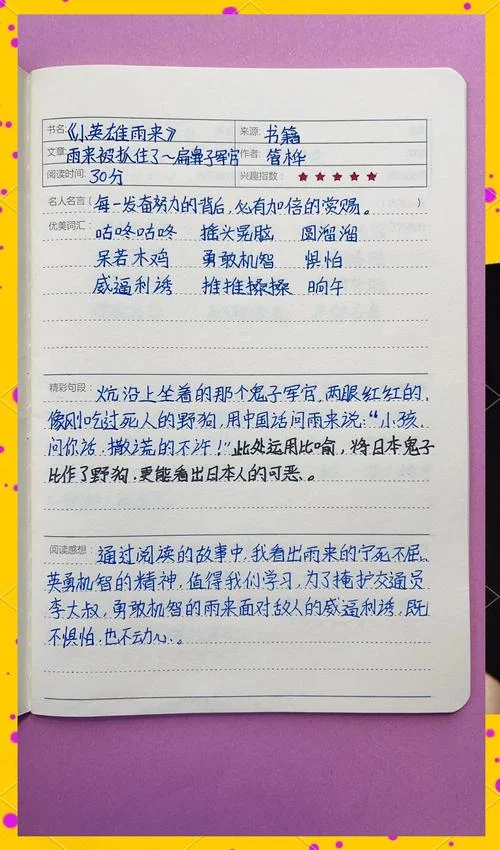 书名:《小英雄雨来》 来源:书籍
文章:雨来被抓住了~扁鼻子军官 作者:管桦
阅读时间:30分 兴趣指数:★★★★★
名人名言(每一发奋努力的背后,必有加倍的赏赐。)
优美词汇:咕咚咕咚 摇头晃脑 圆溜溜
呆若木鸡 勇敢机智 惧怕
威逼利诱 推推搡搡 晌午
精彩句段:炕沿上坐着的那个鬼子军官,两眼红红的,
像刚吃过死人的野狗,用中国话问雨来说:“小孩,
问你话,撒谎的不许!”此处运用比喻,将日本鬼子
比作了野狗,更能看出日本人的可恶。
阅读感想:通过阅读的故事中,我看出雨来的宁死不屈、
英勇机智的精神,值得我们学习,为了掩护交通员
李大叔,勇敢机智的雨来面对敌人的威逼利诱,既
不惧怕,也不动心。